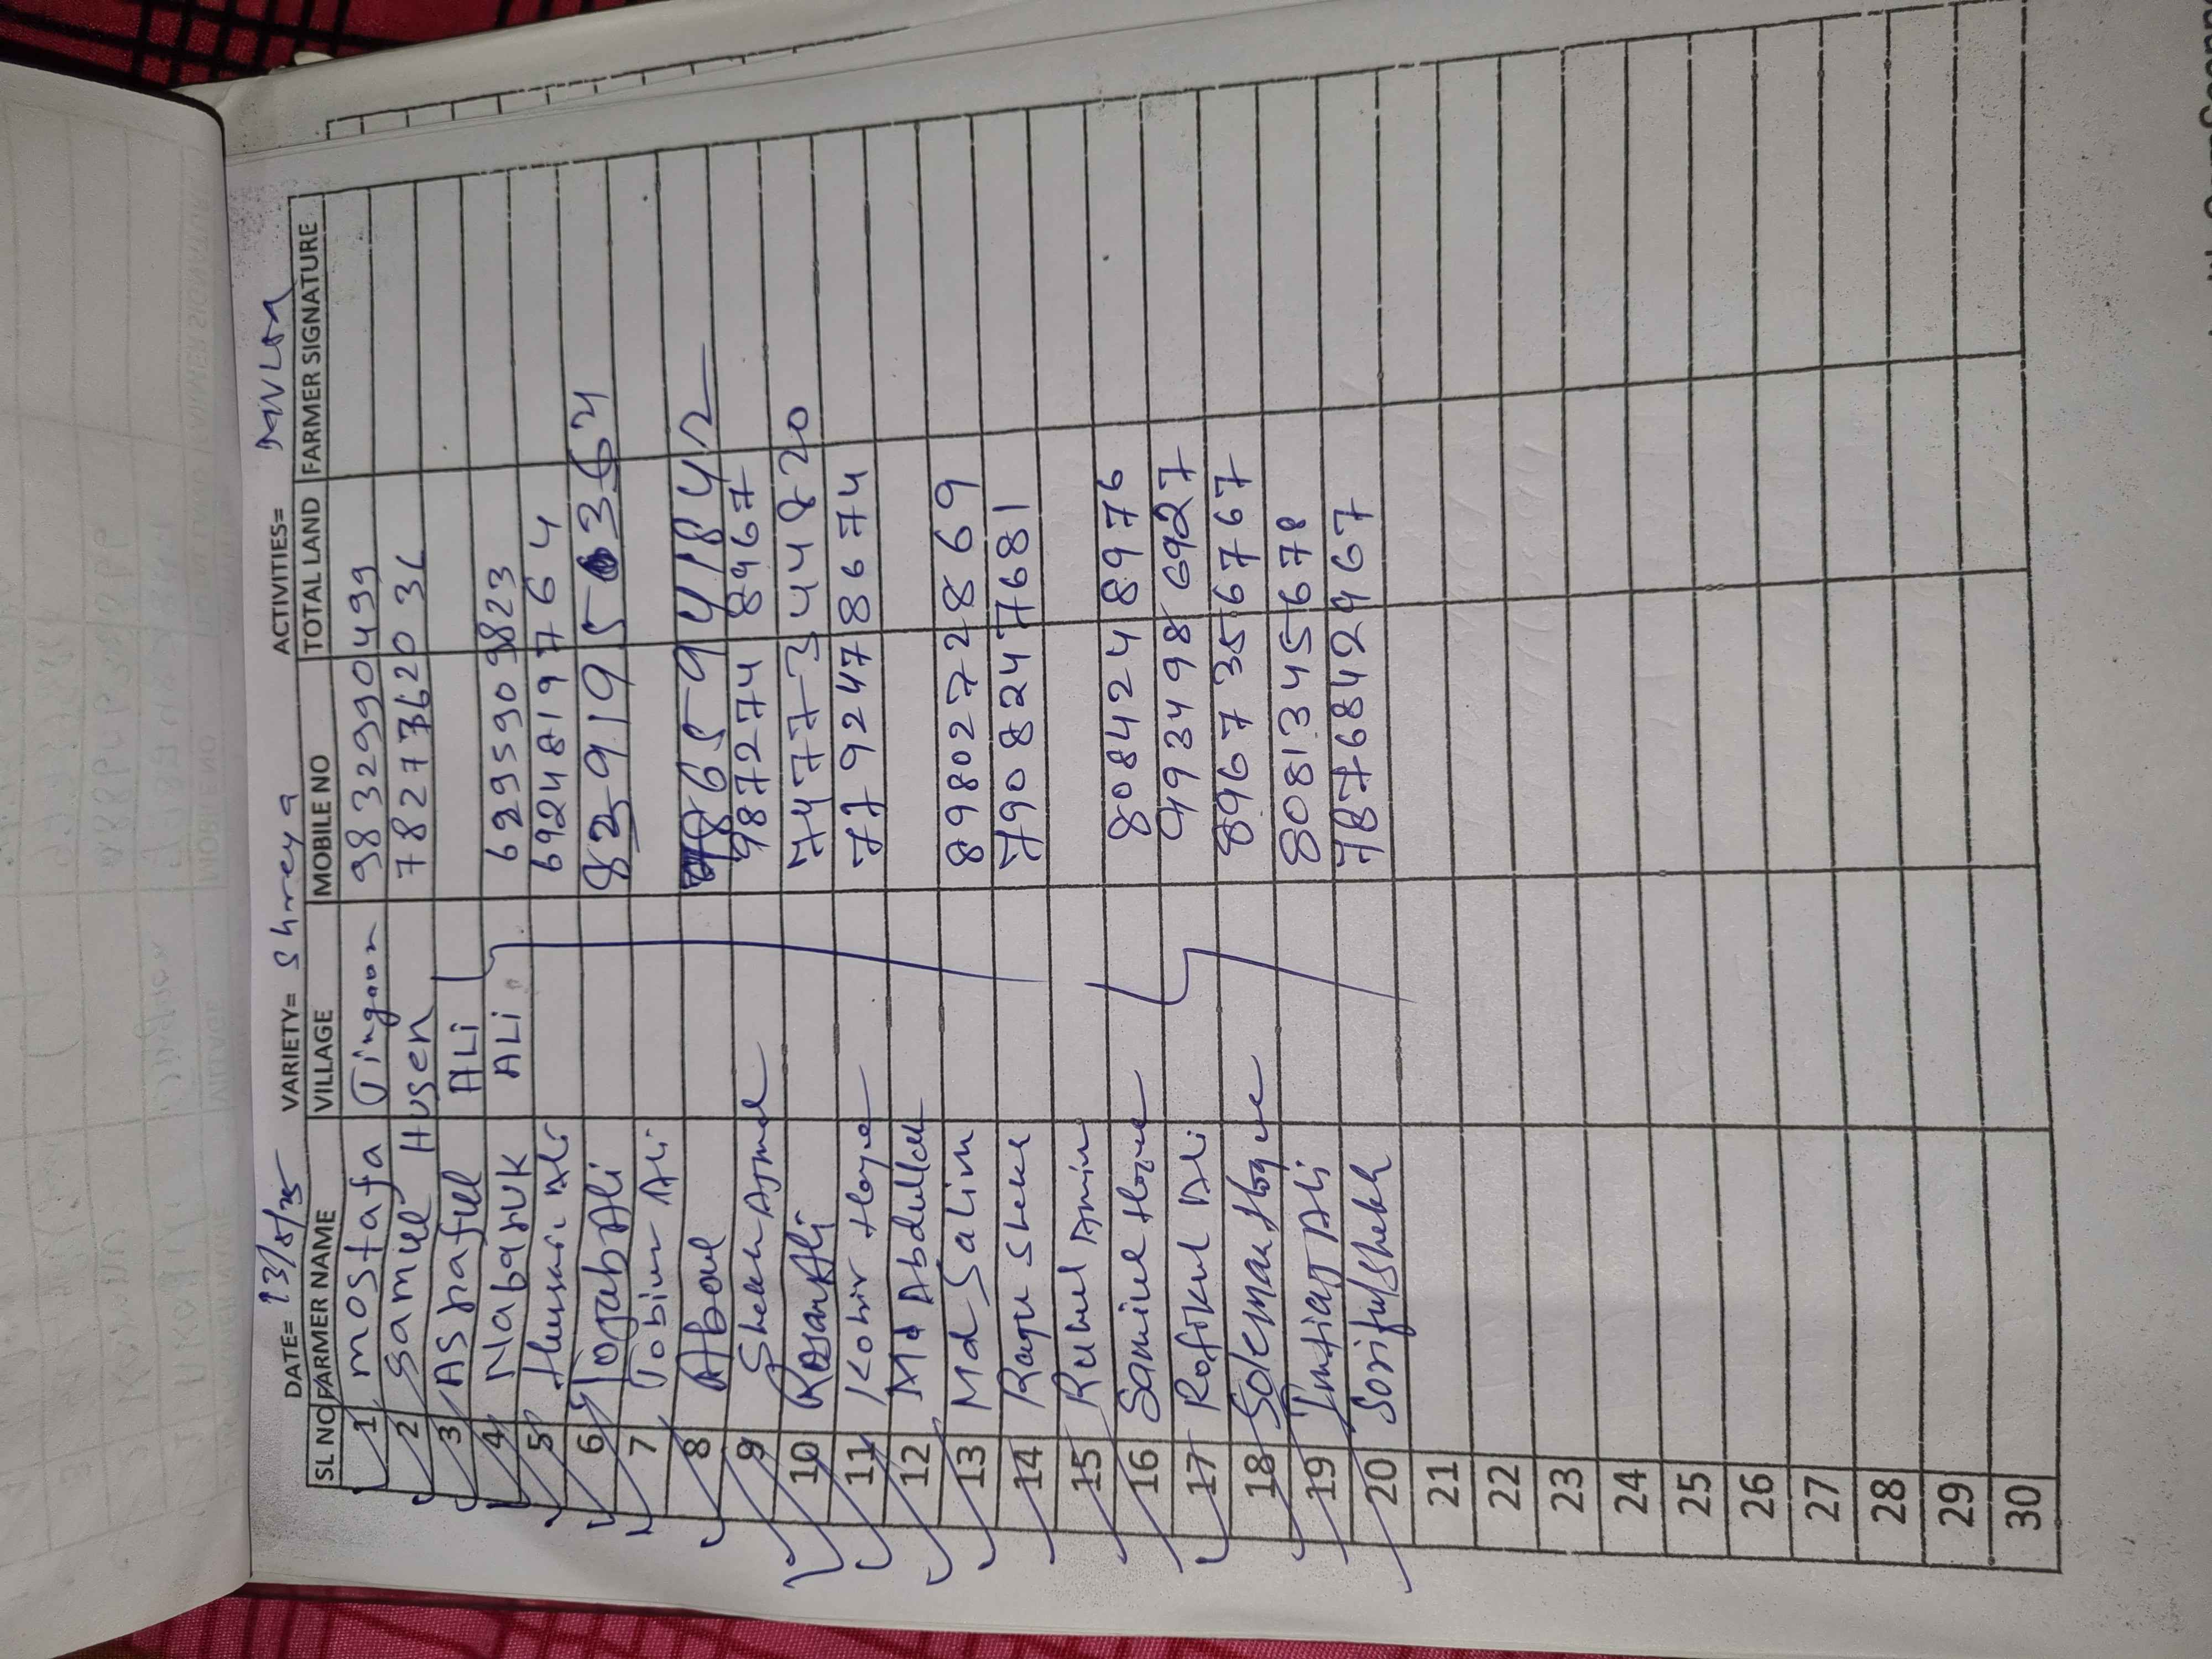 DATE= 13/5/25 VARIETY= Shreya ACTIVITIES=
SL NO FARMER NAME VILLAGE MOBILE NO TOTAL LAND FARMER SIGNATURE
1 mostafa Tingaon 9832990499
2 Samuel Husen 782773620 36
3 Ashaful ALi
4 Nabaruk ALi 6295909823
5 Hussain Ali 6924819764
6 Torab Ali 8399195 364
7 Tobiur Ali
8 Aboul 8659 41842
9 Shekh Ajmal 9872748967
10 Rosan Ali 7477344820
11 Kobir Hoque 7792478674
12 Md Abdullah
13 Md Salim 8980272869
14 Raqu Shekh 7908247681
15 Ruhul Amin
16 Samiul Hoque 8084248976
17 Rofikul Ali 9934986927
18 Soleman Hoque 8967356767
19 Imtiaj Ali 8081345678
20 Soriful Shekh 7876842467
21
22
23
24
25
26
27
28
29
30